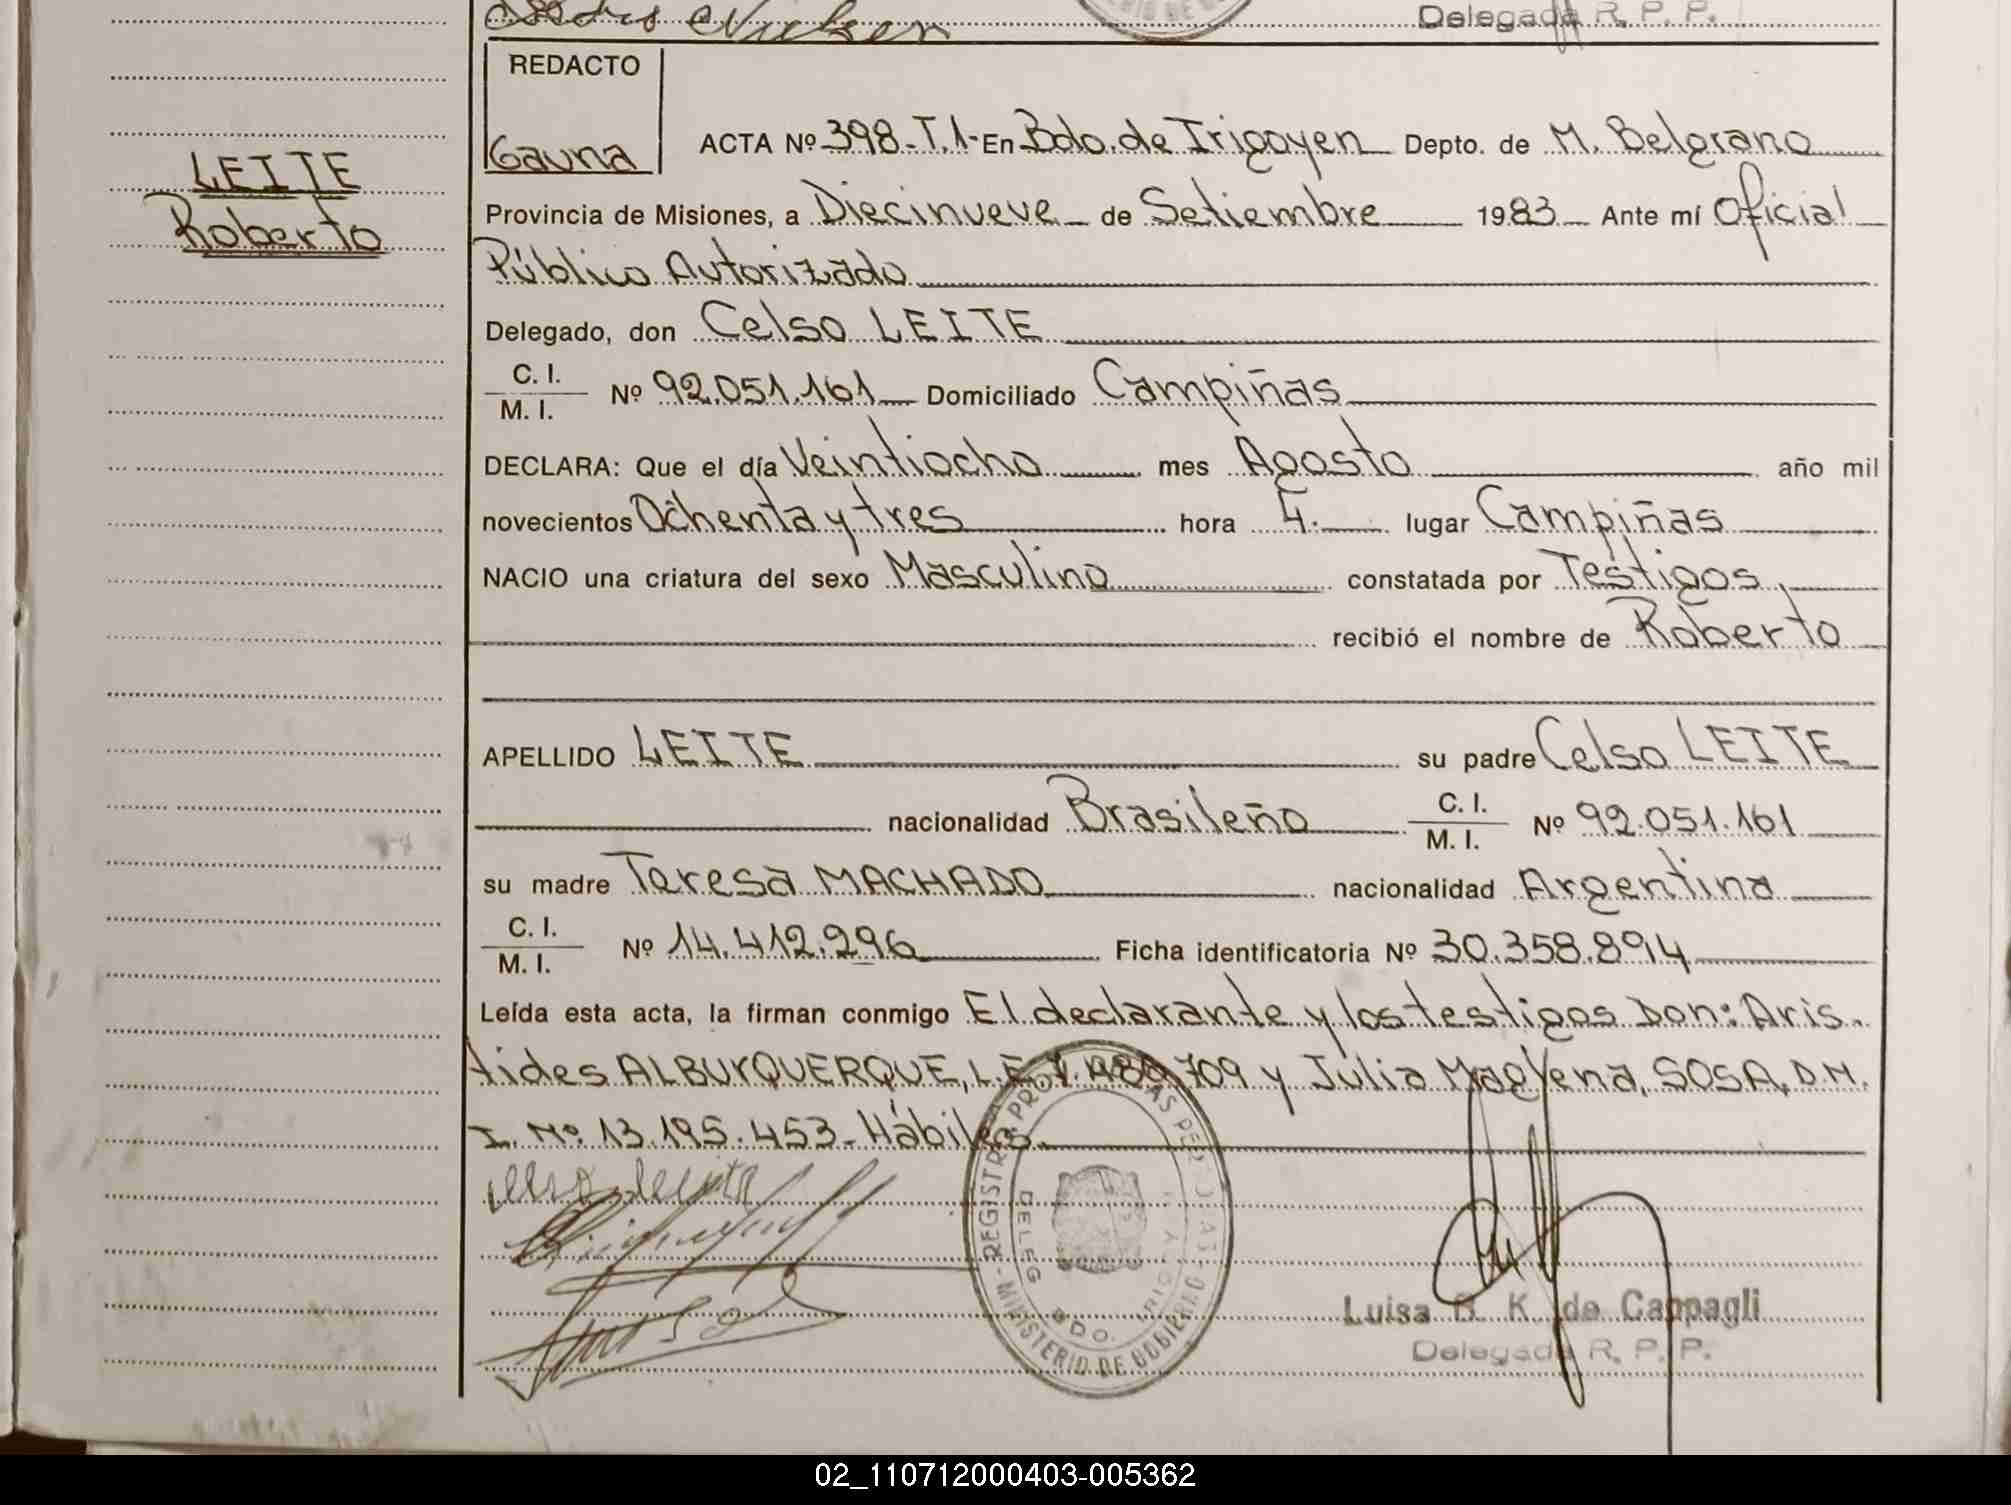 Delegada R. P. P.
REDACTO
Gauna
LEITE
Roberto
ACTA Nº 398-T.1- En Bdo. de Irigoyen Depto. de M. Belgrano
Provincia de Misiones, a Diecinueve de Setiembre 1983 Ante mí Oficial
Público Autorizado
Delegado, don Celso LEITE
C. I.
M. I. Nº 92.051.161 Domiciliado Campiñas
DECLARA: Que el día Veintiocho mes Agosto año mil
novecientos Ochenta y tres hora 4. lugar Campiñas
NACIO una criatura del sexo Masculino constatada por Testigos,
recibió el nombre de Roberto
APELLIDO LEITE su padre Celso LEITE
nacionalidad Brasileño C. I.
M. I. Nº 92.051.161
su madre Teresa MACHADO nacionalidad Argentina
C. I.
M. I. Nº 14.412.296 Ficha identificatoria Nº 30.358.894
Leída esta acta, la firman conmigo El declarante y los testigos Don: Aris-
tides ALBURQUERQUE, L.E. 709 y Julia Magdena, SOSA, D.N.
I. Nº 13.195.453- Hábiles.
REGISTRO PROV DE LAS PERSONAS
DELEG BDO. IRIGOYEN
MINISTERIO DE GOBIERNO
Luisa B. K. de Cappagli
Delegada R. P. P.
02_110712000403-005362